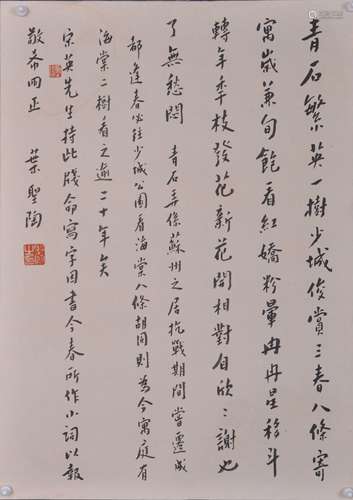 青石繁英一樹少城俊賞三春八條寄
寓歲兼旬飽看紅嬌粉暈冉冉星移斗
轉年年枝發花新花開相對自欣欣謝也
了無愁悶　青石弄係蘇州之居抗戰期間嘗遷成
都逢春必往少城公園看海棠八條胡同則為今寓庭有
海棠二樹看之逾二十年矣
宗英先生持此牋命寫字因書今春所作小詞以報
敬希兩正　葉聖陶